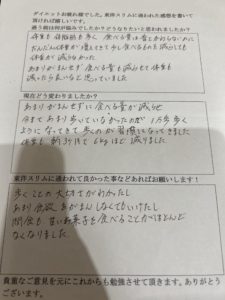 ダイエットお疲れ様でした。東洋スリムに通われた感想を書いて
頂ければ嬉しいです。
通う前は何が悩みでしたか？どうなりたいと思われましたか？
体重も 体脂肪も多く 食べる量は昔と かわらないのに
だんだん体重が増えてきて少し食べるものを減らしても
体重が減らなかった
あまりがまんせずに食べる量も減らせて体重も
減ったら良いなと思っていました
現在どう変わりましたか？
あまりがまんせずに食べる量が減らせ
今まであまり歩いていなかったのが 1万歩歩く
ようになってきて歩くのが習慣になってきました
体重も 約3ヶ月で 6kgほど減りました
東洋スリムに通われて良かった事などあればお願いします！
歩くことの大切さがわかったし
あまり食欲をがまんしなくてもいけたし
間食も 甘いお菓子を食べることがほとんど
なくなりました
貴重なご意見を元にこれからも勉強させて頂きます。ありがとう
ございます。